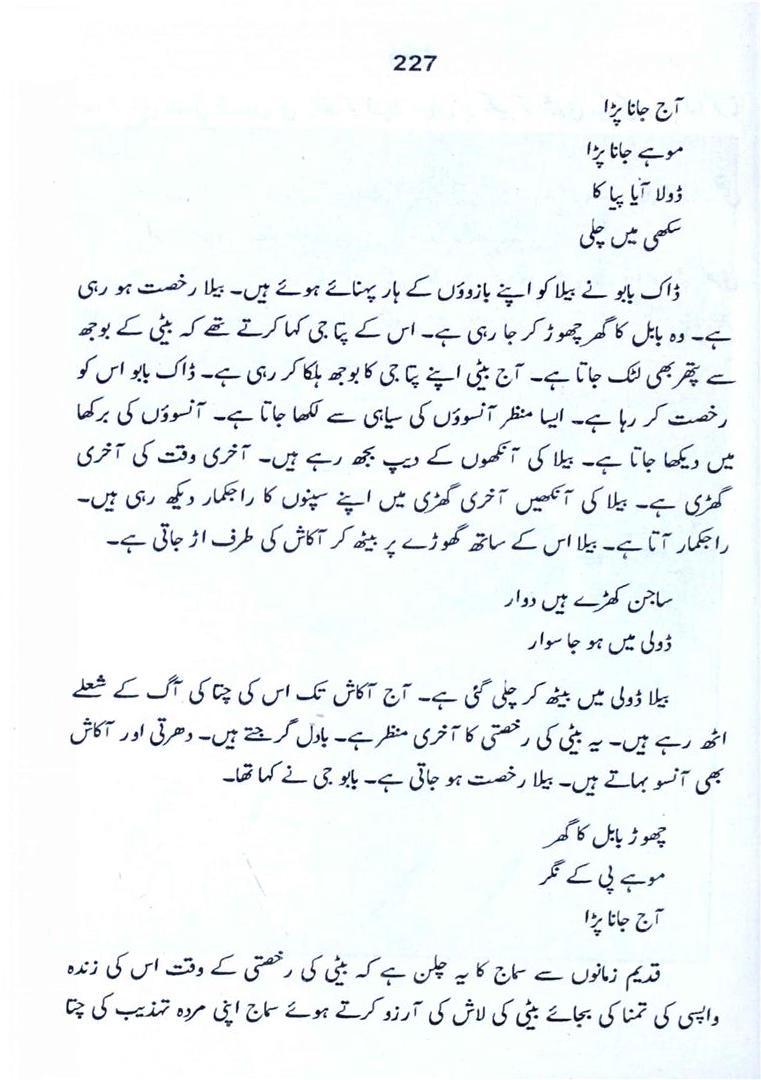 227
آج جانا پڑا
موہے جانا پڑا
ڈولا آیا پیا کا
سکھی میں چلی
ڈاک بابو نے بیلا کو اپنے بازوؤں کے ہار پہنائے ہوئے ہیں۔ بیلا رخصت ہو رہی
ہے۔ وہ بابل کا گھر چھوڑ کر جا رہی ہے۔ اس کے پتا جی کہا کرتے تھے کہ بیٹی کے بوجھ
سے پتھر بھی لٹک جاتا ہے۔ آج بیٹی اپنے پتا جی کا بوجھ ہلکا کر رہی ہے۔ ڈاک بابو اس کو
رخصت کر رہا ہے۔ ایسا منظر آنسوؤں کی سیاہی سے لکھا جاتا ہے۔ آنسوؤں کی برکھا
میں دیکھا جاتا ہے۔ بیلا کی آنکھوں کے دیپ بجھ رہے ہیں۔ آخری وقت کی آخری
گھڑی ہے۔ بیلا کی آنکھیں آخری گھڑی میں اپنے سپنوں کا راجکمار دیکھ رہی ہیں۔
راجکمار آتا ہے۔ بیلا اس کے ساتھ گھوڑے پر بیٹھ کر آکاش کی طرف اڑ جاتی ہے۔
ساجن کھڑے ہیں دوار
ڈولی میں ہو جا سوار
بیلا ڈولی میں بیٹھ کر چلی گئی ہے۔ آج آکاش تک اس کی چتا کی آگ کے شعلے
اٹھ رہے ہیں۔ یہ بیٹی کی رخصتی کا آخری منظر ہے۔ بادل گرجتے ہیں۔ دھرتی اور آکاش
بھی آنسو بہاتے ہیں۔ بیلا رخصت ہو جاتی ہے۔ بابو جی نے کہا تھا۔
چھوڑ بابل کا گھر
موہے پی کے نگر
آج جانا پڑا
قدیم زمانوں سے سماج کا یہ چلن ہے کہ بیٹی کی رخصتی کے وقت اس کی زندہ
واپسی کی تمنا کی بجائے بیٹی کی لاش کی آرزو کرتے ہوئے سماج اپنی مردہ تہذیب کی چتا